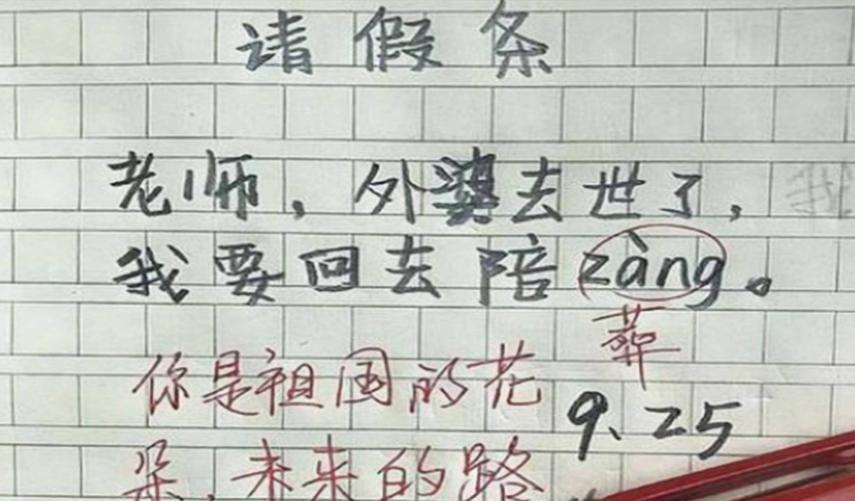 请假条
老师，外婆去世了，
我要回去陪zàng。
葬
你是祖国的花
9.25
朵，未来的路